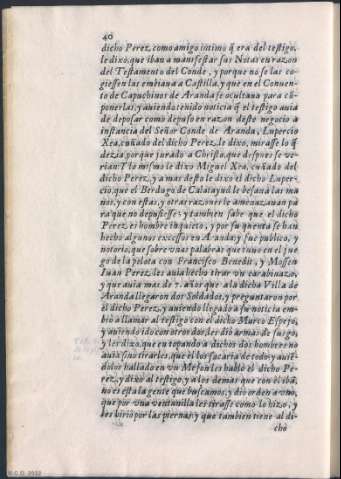 40
dicho Perez, como amigo intimo q̃ era del testigo,
le dixo, que iban a manifestar sus Notas en razon
del Testamento del Conde, y porque no se las co-
giessen las embiaua a Castilla, y que en el Conuen-
to de Capuchinos de Aranda se ocultaua para cõ-
ponerlas; y auiendo tenido noticia q̃ el testigo auia
de deposar como depuso en razon deste negocio a
instancia del Señor Conde de Aranda, Lupercio
Xea, cuñado del dicho Perez, le dixo, mirasse lo q̃
dezia porque jurado a Christo, que despues se ve-
rian: Y lo mismo le dixo Miguel Xea, cuñado del
dicho Perez, y a mas desto le dixo el dicho Luper-
cio, que el Berdugo de Calatayud le besaua las ma
nos, y con estas, y otras razones le amenazauan pa
ra que no depusiesse; y tambien sabe que el dicho
Perez es hombre inquieto, y por su quenta se han
hecho algunos excessos en Aranda, y fue publico, y
notorio, que sobre unas palabras que tuuo en el jue
go de la pelota con Francisco Benedit, y Mossen
Iuan Perez, les auia hecho tirar un carabinazo,
y que auia mas de 7. años que a la dicha Villa de
Aranda llegaron dos Soldados, y preguntaron por
el dicho Perez, y auiendo llegado a su noticia em-
biò a llamar al testigo con el dicho Marco Espejo,
y auiendo ido con otros dos, les diò armas de fuego,
y les dixo, que en topando a dichos dos hombres no
auia sino tirarles, que èl los sacaria de todo; y auiẽ-
dolos hallado en un Meson les hablò el dicho Pe-
rez, y dixo al testigo, y a los demas que con èl ibã,
no es esta la gente que buscamos, y diò orden a uno,
que por una ventanilla les tirasse como lo hizo, y
les hiriò por las piernas; y que tambien tiene al di-
cho